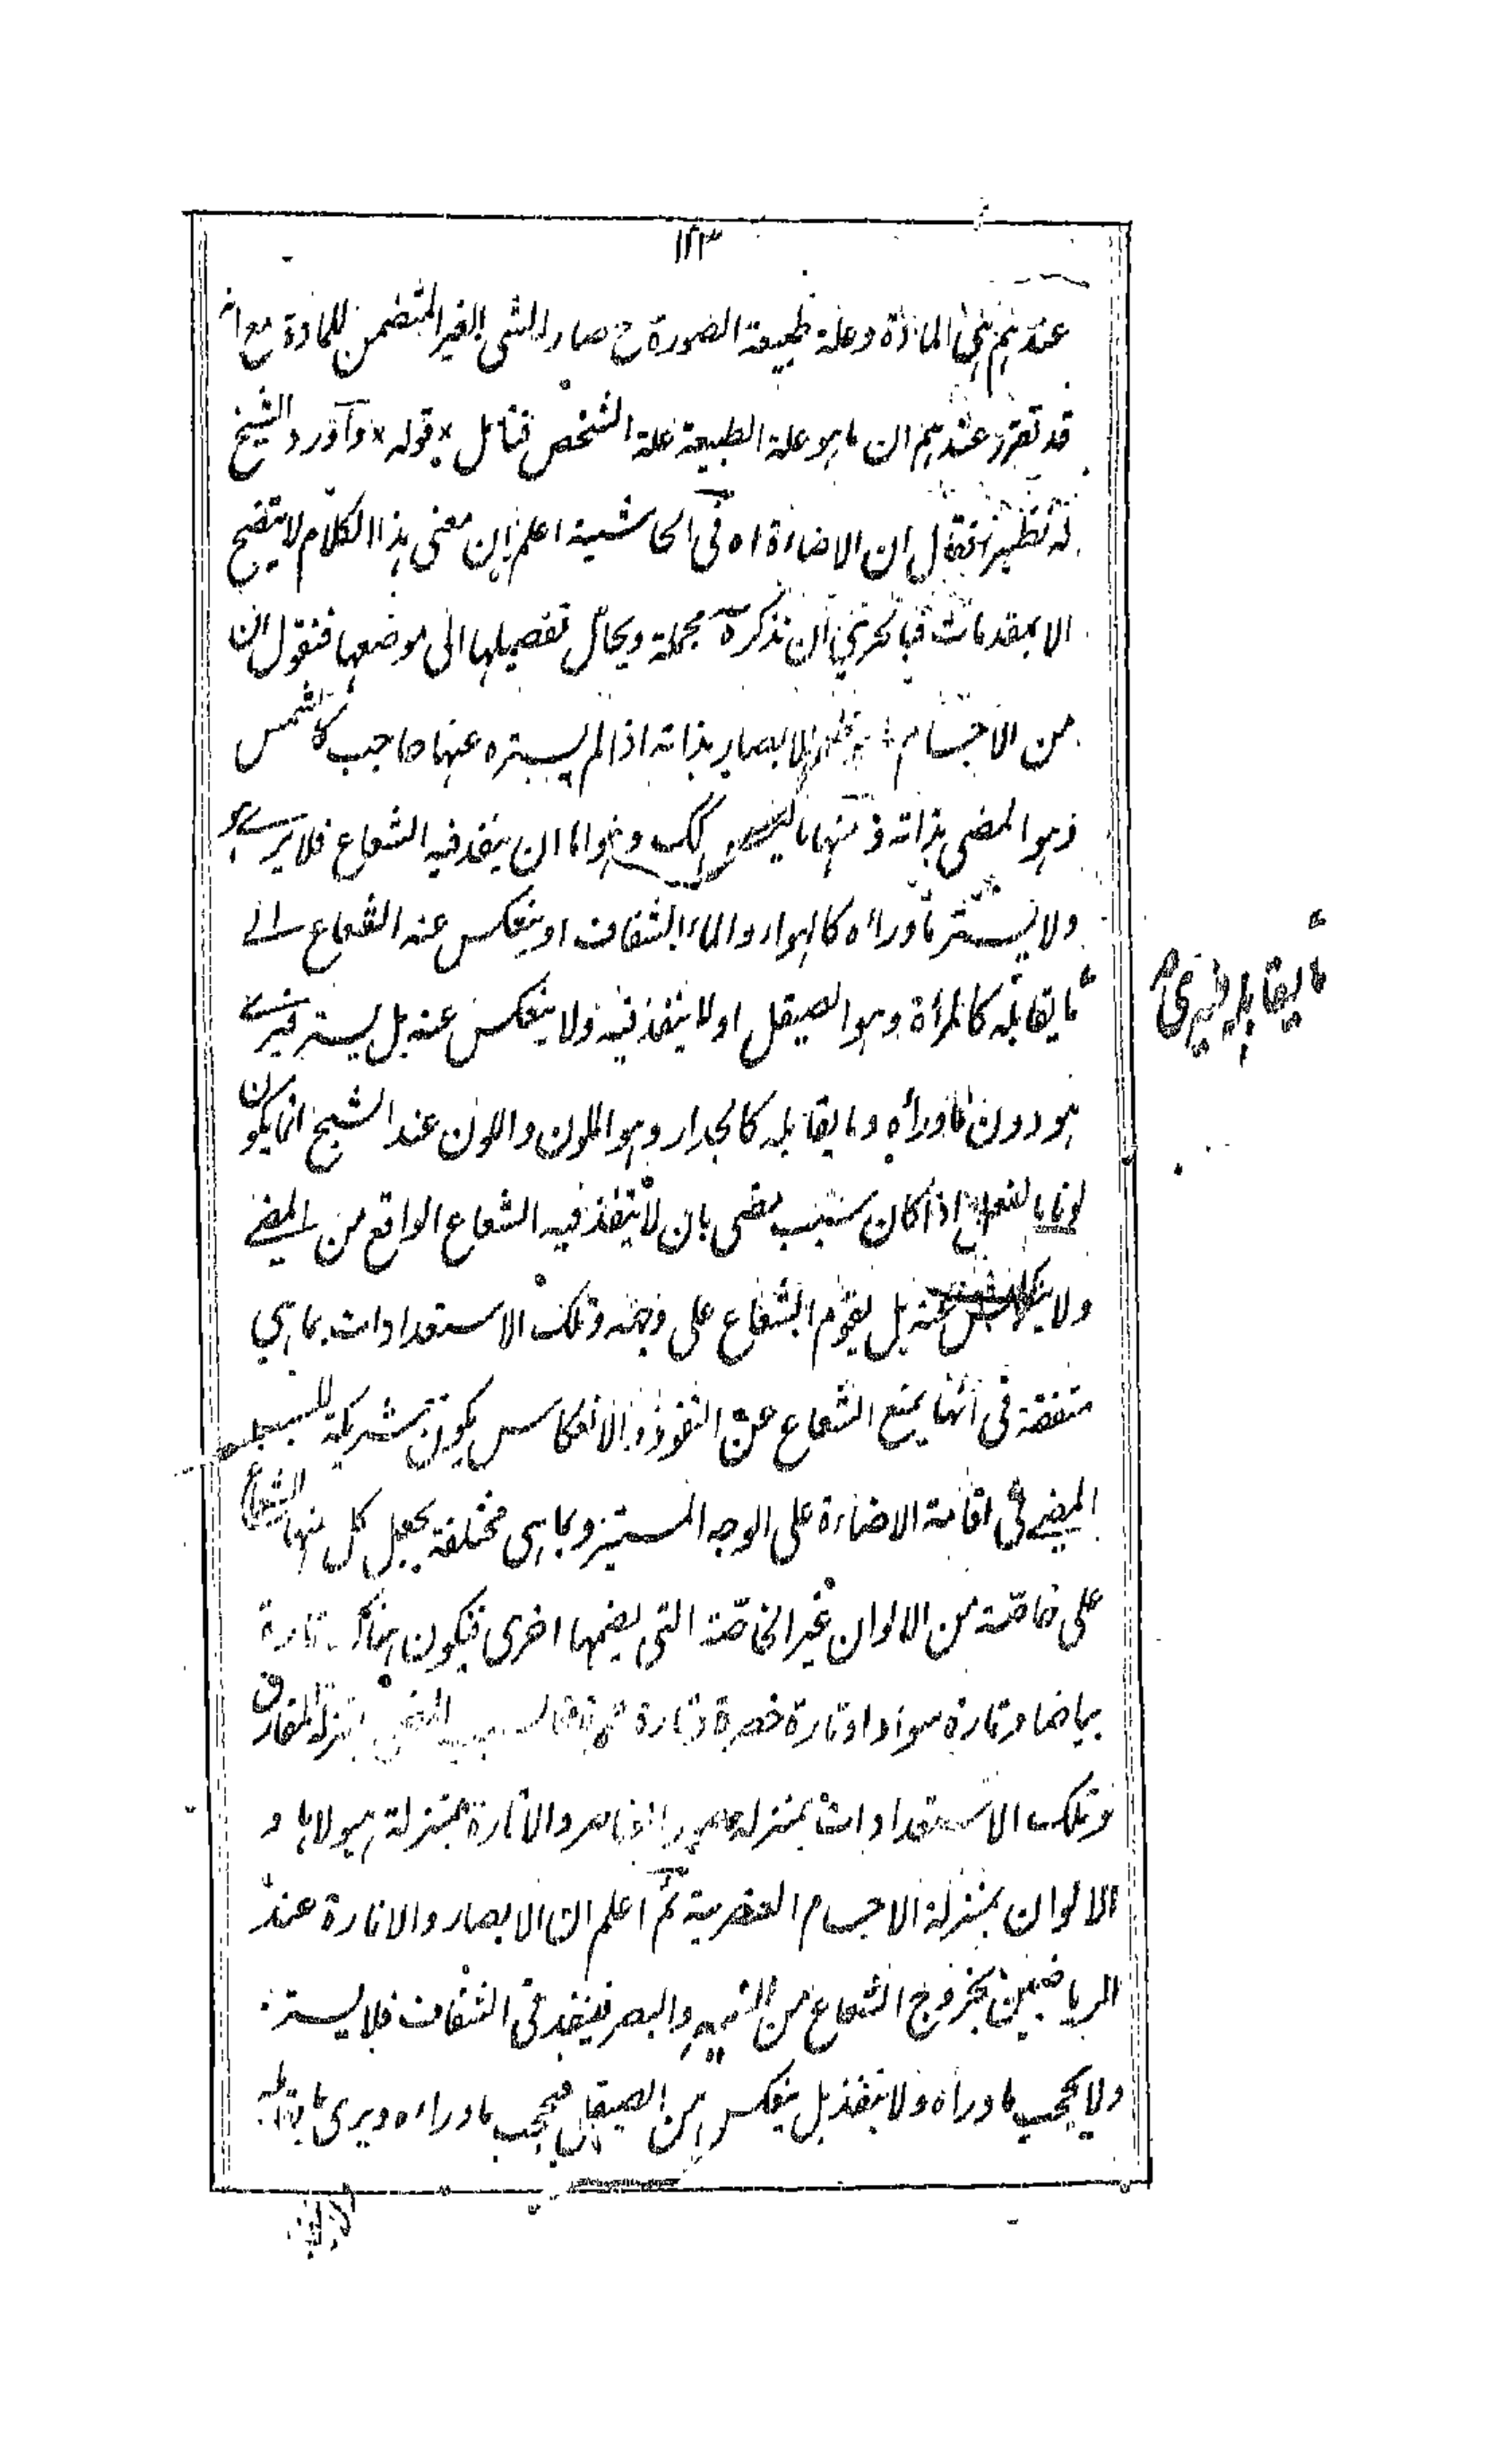 ١٢٣
عندهم هي المادة وعلة طبيعة الصورة ح صار الشي الغير المتضمن للمادة مع انه
قد تقرر عندهم ان ما هو علة الطبيعة علة الشخص فتامل × قوله × وآورد الشيخ
له تنظيرا فقال ان الاضاءة اه فى الحاشية اعلم ان معنى هذا الكلام لا يتضح
الا بمقدمات فبالحري ان نذكره مجملة ويحال تفصيلها الى موضعها فنقول ان
من الاجسام ما يظهر للابصار بذاته اذا لم يستره عنها حاجب كالشمس
وهو المضي بذاته ومنها ما ليس كك وهو اما ان ينفذ فيه الشعاع فلا يرے هو
ولا يستتر ماوراءه كالهواء والماء الشفاف او ينعكس عنه الشعاع الے
ما يقابله كالمرأة وهو الصيقل او لا ينفذ فيه ولا ينعكس عنه بل يستر فيرے
ما يقابله فيرى
هو دون ماوراءه وما يقابله كالجدار وهو الملون واللون عند الشيخ انما يكون
لونا بالفعل اذا كان بسبب مضى بان لا ينفذ فيه الشعاع الواقع من المضے
ولا ينعكس عنه بل يقوم الشعاع على وجهه وتلك الاستعدادات بما هي
متفقة فى انها يمنع الشعاع عن النفوذ والانعكاس يكون شريكة للسبب
المضے فى اقامة الاضاءة على الوجه المستنير وبما هى مختلفة يجعل كل منها الشعاع
على خاصة من الالوان غير الخاصة التى يضمها اخرى فيكون هناك تارة
بياضا وتارة سوادا وتارة خضرة وتارة حمرة فالسبب المضى بمنزلة المفارق
وتلك الاستعدادات بمنزلة صور العناصر والانارة بمنزلة هيولاها و
الالوان بمنزلة الاجسام العنصرية ثم اعلم ان الابصار والانارة عند
الرياضيين بخروج الشعاع من النير والبصر فينفذ فى الشفاف فلا يستر
ولا يحجب ماوراه ولا ينفذ بل ينعكس من الصيقل فيحجب ماوراءه ويرى ما يقابله